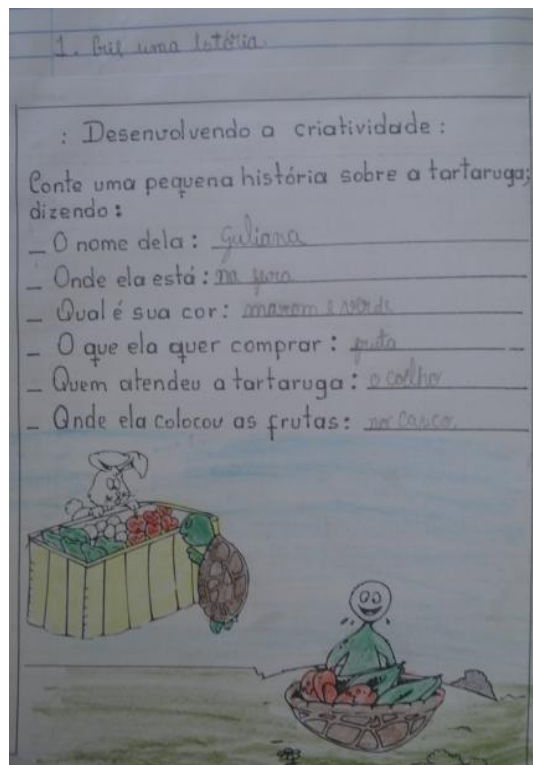 1. Crie uma istória.
: Desenvolvendo a criatividade :
Conte uma pequena história sobre a tartaruga;
dizendo:
_ O nome dela: Guliana
_ Onde ela está: na feira
_ Qual é sua cor: marrom e verde
_ O que ela quer comprar: fruta
_ Quem atendeu a tartaruga: o coelho
_ Onde ela colocou as frutas: no casco.